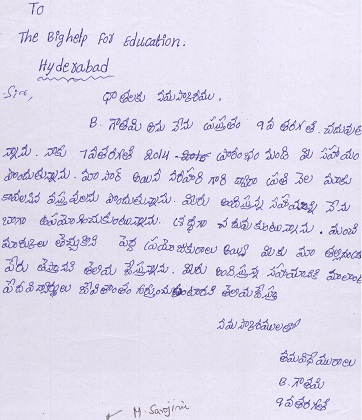 To
The Bighelp For Education.
Hyderabad
Sir,
దాతలకు నమస్కారము.
B. గౌతమి అను నేను ప్రస్తుతం 9వ తరగతి. చదువుతు
న్నాను. నాకు 7వతరగతి 2014-2015 ప్రారంభం నుండి మీ సహాయం
పొందుతున్నాను. మా సార్ అయిన గారి ద్వారా ప్రతి నెల మాకు
కావలసిన వస్తువులను పొందుతున్నాను. మీరు అందిస్తున్న సహాయాన్ని నేను
బాగా ఉపయోగించుకుంటున్నాను. శ్రద్ధగా చదువుకుంటున్నాను. మంచి
మార్కులు తెచ్చుకొని పెద్ద ప్రయోజకురాలు అయ్యి మీకు మా తల్లిదండ్రు
పేరు తెస్తానని తెలియ చేస్తున్నాను. మీరు అందిస్తున్న సహాయానికి మాలాంటి
పేదవిద్యార్థులు జీవితాంతం తెలియచేస్తు
నమస్కారములతో
తమవిధేయురాలు
B. గౌతమి
9వతరగతి
M. Sarojini